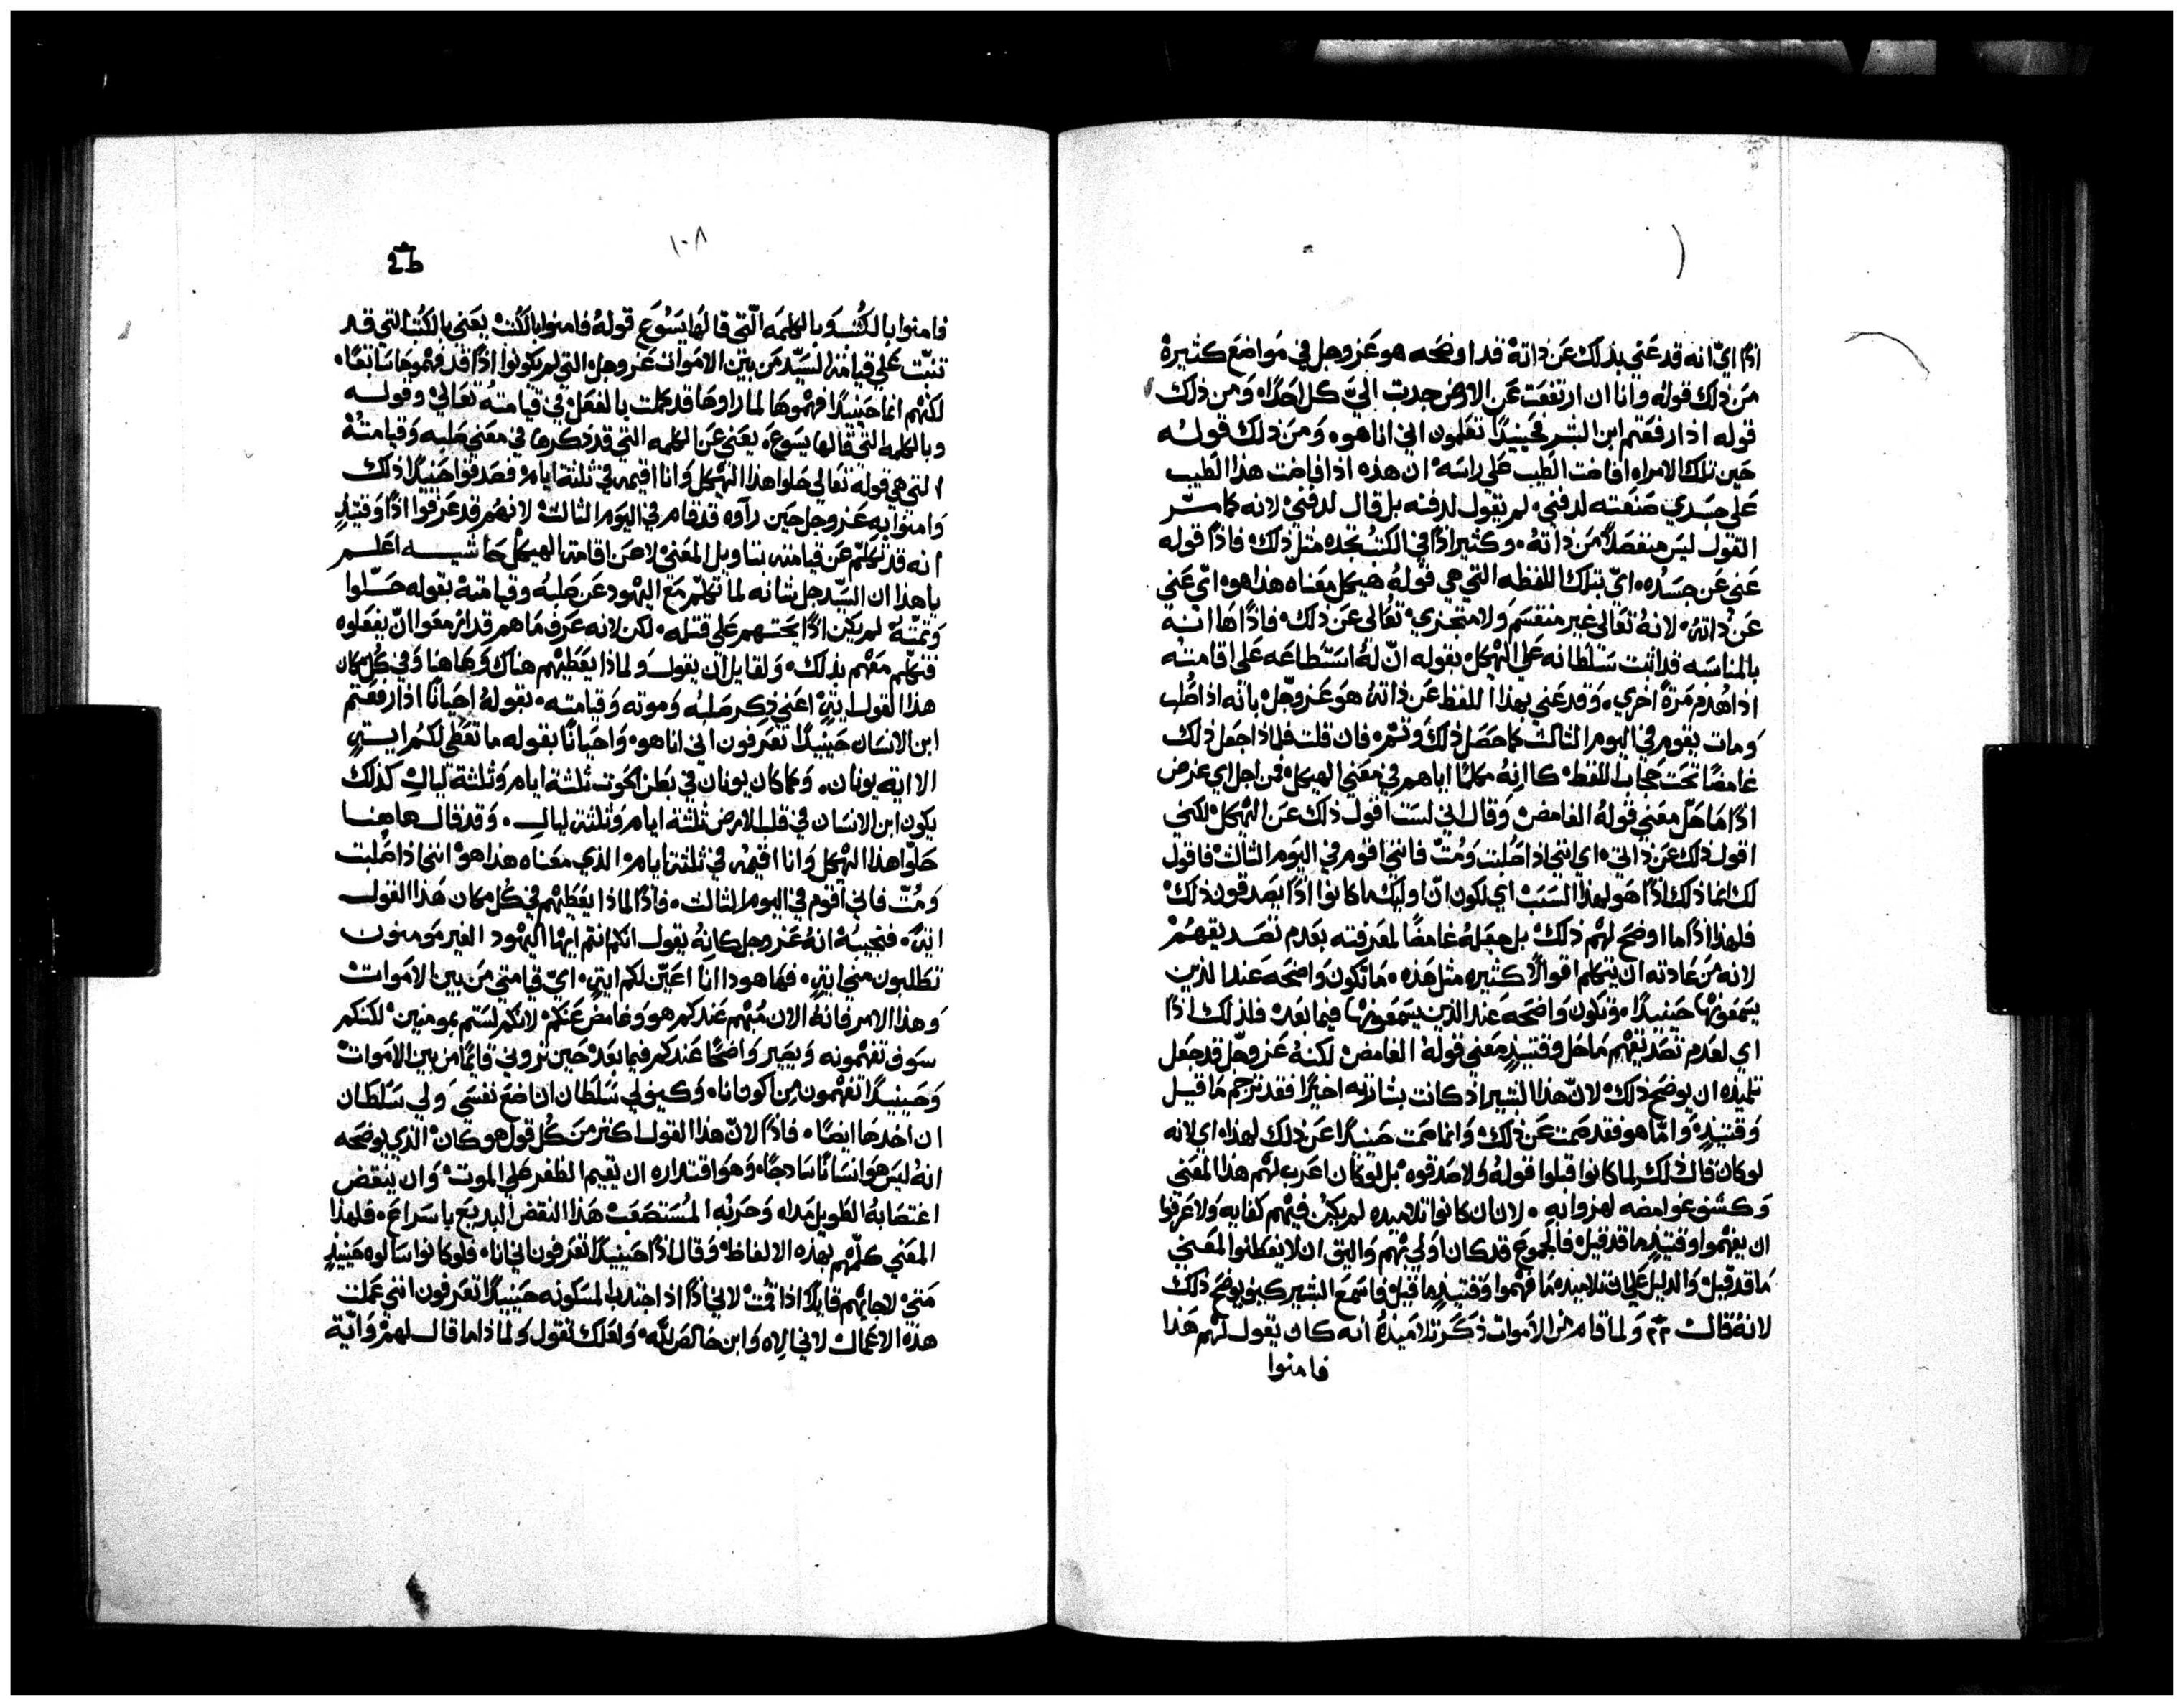 اذًا ايّ انه قد عَني بذلك عَن ذاتهْ قد اوضحَه هو عَزوجل في مَواضعَ كثيرةْ
مَن ذلك قولهُ وانا ان ارتفعَت عَن الارض جدبت اليّ كل احَد. وَمن ذلك
قوله اذا رفعَتم ابن البشر فحَينيدًا تعَلمون اني انا هو. وَمَن ذلك قولُه
حَين تلك الامراه افاضت الطيب عَلي راسَهْ ان هذه اذ افاضت هذا الطيب
عَلي جسَدي صَنعَته لدفني. لم يقول لدفنه بل قال لدفنيْ لانه كما سرّ
القول ليسَ منفصَلاً مَن ذاتهْ. وكثيرًا اذًا في الكتبْ تجده مثل ذلك فاذًا قوله
عَني عَن جسَدُه. ايّ بتلك اللفظه التي هي قولهُ هيكل مَعناه هذا هو. ايّ عَني
عَن ذاتهُ. لانهُ تعَالي غير منقسَم وَلا متجزي. تعَالي عَن ذلك. فاذًا هَا انهُ
بالمناسَبه قد اثبت سَلطانه عَلي الهيكل بقوله انّ لهُ استطاعَه عَلي اقامتهُ
اذا هُدم مَرةً اخري. وَقد عَني بهذا اللفظ عَن ذاتهْ هوَ عَزوجَل بانه اذا صُلب
وَمات يقوم في اليوم الثالث كما حَصَل ذلك وَتم. فان قلت فلماذا جعَل ذلك
غامضًا تحَت حجَاب اللفظ. كاانهُ مكلمًا اياهم في معَني الهيكل فمن اجل اي غرض
اذًا مَا حَلّ معَني قولهُ الغامضْ وَقال اني لسَت اقول ذلك عَن الهيكل لكني
اقول ذلك عَن ذاتي. اي انني اذا صُلبت وَمُتّ فانني اقوم في اليوم الثالثْ فاقول
لك انما ذلك اذًا هو لهذا السَبَبْ اي لكون انّ اوليك ما كانوا اذًا يصَدقون ذلكْ
فلهذا اذًا ما اوضحَ لهم ذلكْ بل جعَلهُ غامضًا لمعَرفته بعَدم تصَديقهُمْ
لانه مَن عَادته ان يتكلم اقوالاً كثيره مثل هذه. مَا تكون وَاضحَه عَند الذين
يسَمعَونها حَينيدًا. وَتكون وَاضحَه عَند الذين يسَمعَونها فيما بعَدْ فلذلك اذًا
اي لعَدم تصَديقهم مَا حَل وقتيذٍ معَني قولهْ الغامضْ لكنهُ عَزوجَل قد جعَل
تلميذه ان يوضحَ ذلك. لانّ هذا البشير اذ كانت بشارته اخيرًا فقد ترجم مَا قيل
وَقتيذٍ. وَامّا هو فقد صمت عَن ذلكْ وَانما صمت حَينيدًا عَن ذلك لهذا. اي لانه
لو كان قال ذلك لما كانوا قبلوا قولهُ وَلا صَدقوه. بل لو كان اعَرب لهم هذا المعَني
وَكشف غوامضه لهزوا به. لان ان كانوا تلاميذه لم يكن فيهم كفايه وَلا عَرفوا
ان يفهموا وقتيذٍ ما قد قيل. فالجموعَ قد كان اوَلي بهم وَاليق ان لا يفطنوا المعَني
مَا قد قيلْ وَالدليل عَلي ان تلاميذه مَا فهموا وَقتيذٍ ما قيلْ فاسَمعَ البشير كيف يوضحَ ذلك
لانهُ قالْ ٢٢ وَلما قام من الاموات ذكَر تلاميذهُ انه كان يقول لهم هَذا
فامنوا
١٠٨
فامنوا بالكتب وَبالكلمه الّتي قالهَا يَسُوَع قولهُ فامنوا بالكتبْ يعَني بالكتب التي قد
تنبّت عَلي قيامة السَيّد مَن بين الامَوات عَزوجل التي لم يكونوا اذًا قد فهموهَا سَابقًا.
لكنهم انما حَينيدًا فهموهَا لما راوهَا قد كملت بالفعَلْ في قيامتهْ تعَاليْ وقوله
وبالكلمه التي قالها يسَوع. يعَني عَن الكلمه التي قد ذكرهَا في معَني صَلبه وَقيامتهْ
التي هي قوله تعَالي حَلوا هذا الهيكل وَانا اقيمه في ثلثة ايام فصَدقوا حَينيدًا ذلك
وَامنوا به عَزوجل حَين رآوه قد قام في اليوم الثالثْ لانهم قد عَرفوا اذًا وَقتيذٍ
انه قد تكلّم عَن قيامته بتاويل المَعني لا عَن اقامة الهيكلْ حَاشيه اعَلم
يا هذا ان السَيّد جل شانه لما تكلّم مَعَ اليهود عَن صَلبهُ وقيامتهْ بقوله حَلّوا
وَتمتهُ لم يكن اذًا يحَتهم عَلي قتله. لكن لانه عَرف مَا هم قد ازمعَوا انّ يفعَلوه
فتكلّم معَهم بذلك. وَلقايل ان يقول وَلماذا يعَطيهم هناك وَهَاهنا وَفي كُل مكان
هذا القول ايةً اعَني ذِكر صَلبُه وَموته وَقيامته. بقولهُ احَيانًا اذا رفعَتم
ابن الانسَان حَينيدًا تعَرفون اني انا هو. وَاحَيانًا بقوله ما تعَطي لكم ايةٍ
الا اية يونان. وَكما كان يونان في بَطن الحَوت ثلثة ايام وَثلثة ليالٍ كذلك
يكون ابن الانسَان في قلب الارضْ ثلثة ايام وَثلثة ليالٍ. وَقد قال هاهنا
حَلوا هذا الهيكل وَانا اقيمهُ في ثلثة ايام. الذي معَناه هذا هو. انني اذا صُلبت
وَمُتّ فاني اقوم في اليوم الثالث. فاذًا لماذا يعَطيهم في كُل مكان هَذا القول
ايةً. فنجيبهُ انهُ عَزوجل كانهُ يقول انكم انتم ايها اليهود الغير مَومنون
تطلبون مني ايةٍ. فها هوذا انا اعَيّن لكم ايةٍ. ايّ قيامتي مَن بين الامَواتْ
وهذا الامر فانهُ الان مُبهم عَندكم هو وَغامض عَنكم. لانكم لسَتم بمومنين. لكنكم
سَوف تفهمونه وَيصَير وَاضحًا عَندكم فيما بعَدْ حَين تروني قايمًا مَن بين الامَواتْ
وَحَينيدًا تفهمون مِن اكون انا. وَكيف لي سَلطان ان اضعَ نفسَي وَلي سَلطان
ان اخذهَا ايضًا. فاذًا لانّ هذا القول اكثر مَن كُل قول هو كان الذي يوضحَه
انهُ ليسَ هوَ انسَانًا سَادجًا. وَهوَ اقتداره ان يقيم الظفر عَلي الموتْ وَان ينقض
اغتصَابهُ الطويل مَداه وَحَربُه المُستصَعَبْ هَذا النقض البديعَ باسَراعَ. فلهذا
المعَني كلّمهم بهذه الالفاظْ وَقال اذًا حَينيدًا تعَرفون اني انا. فلو كانوا سَالوه حَينيذٍ
مَتيْ لاجابهم قايلاً اذا قمتْ لاني اذًا اذ اجتذب المسَكونه حَينيدًا تعَرفون انني عَملت
هذه الاعَمالْ لاني اله وَابن خالصَ للّه. وَلعَلك تقول وَلماذا ما قال لهم وَايّة